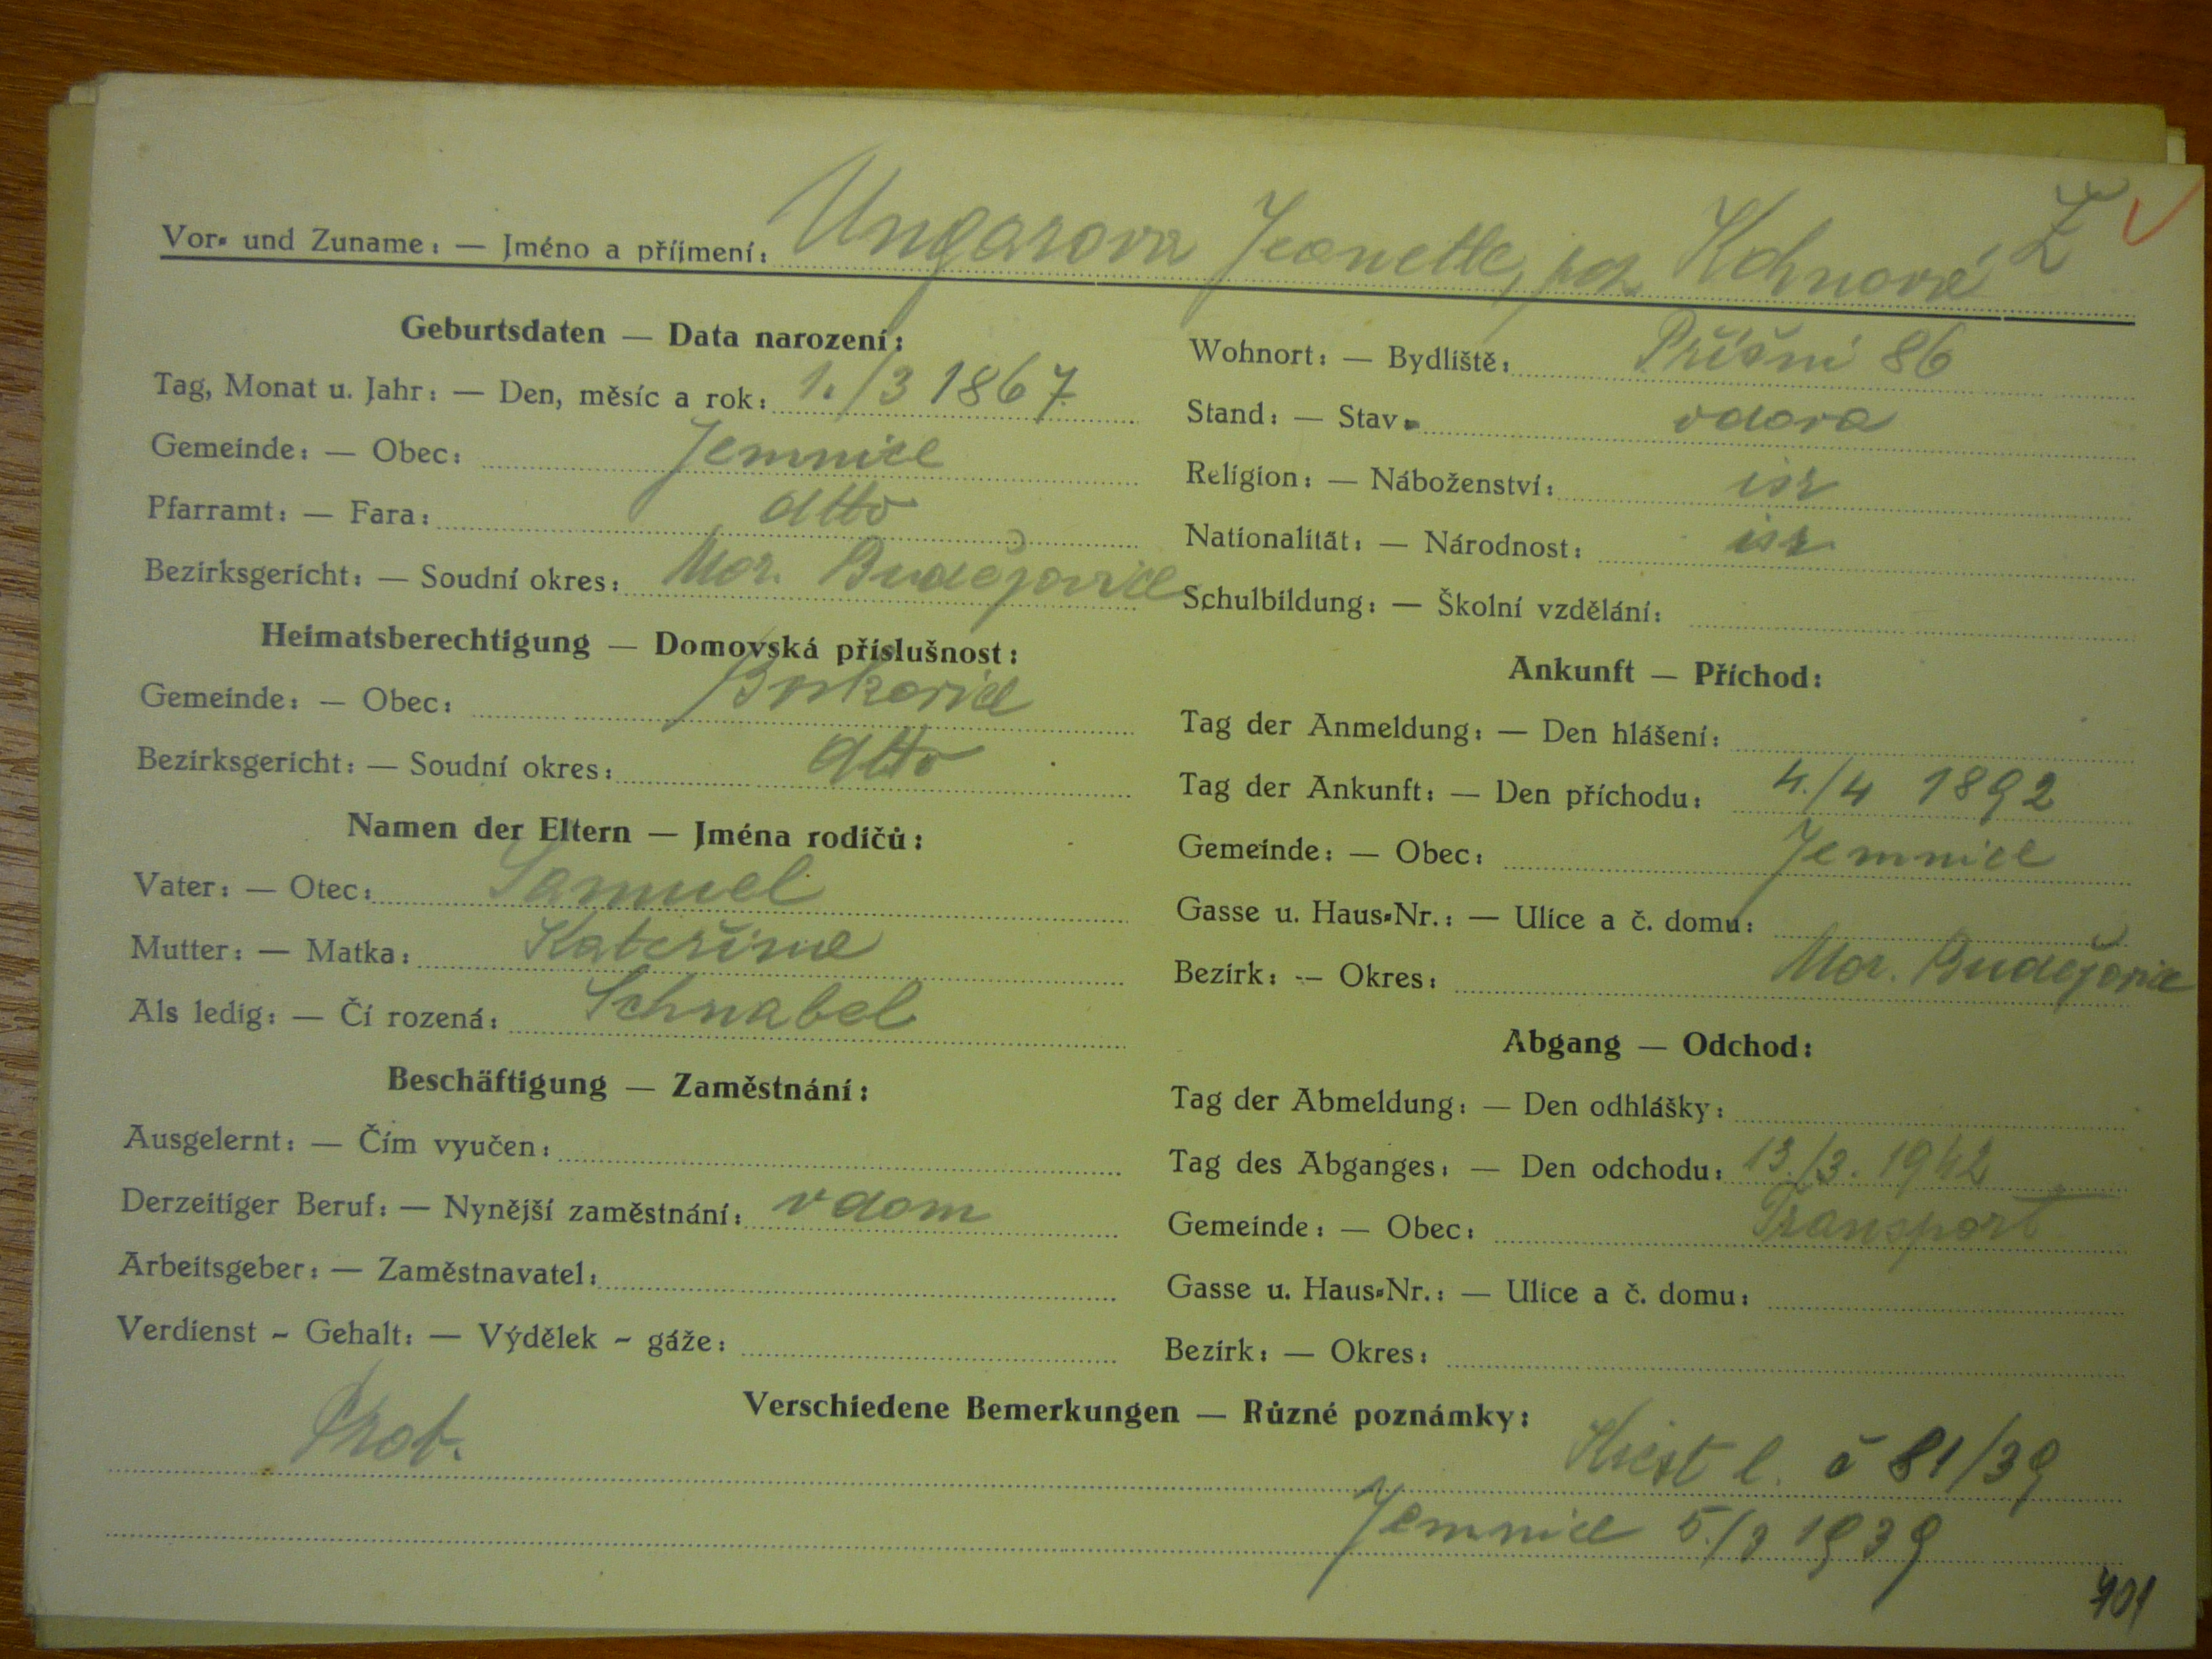 Vor- und Zuname: — Jméno a příjmení: Ungarova Jeanette, roz. Kohnová Ž
Geburtsdaten — Data narození:
Tag, Monat u. Jahr: — Den, měsíc a rok: 1./3 1867
Gemeinde: — Obec: Jemnice
Pfarramt: — Fara: dtto
Bezirksgericht: — Soudní okres: Mor. Budějovice
Heimatsberechtigung — Domovská příslušnost:
Gemeinde: — Obec: Boskovice
Bezirksgericht: — Soudní okres: dtto
Namen der Eltern — Jména rodičů:
Vater: — Otec: Samuel
Mutter: — Matka: Kateřina
Als ledig: — Čí rozená: Schnabel
Beschäftigung — Zaměstnání:
Ausgelernt: — Čím vyučen:
Derzeitiger Beruf: — Nynější zaměstnání: v dom
Arbeitsgeber: — Zaměstnavatel:
Verdienst - Gehalt: — Výdělek - gáže:
Wohnort: — Bydliště: Příční 86
Stand: — Stav: vdova
Religion: — Náboženství: isr
Nationalität: — Národnost: isr
Schulbildung: — Školní vzdělání:
Ankunft — Příchod:
Tag der Anmeldung: — Den hlášení:
Tag der Ankunft: — Den příchodu: 4./4 1892
Gemeinde: — Obec: Jemnice
Gasse u. Haus-Nr.: — Ulice a č. domu:
Bezirk: — Okres: Mor. Budějovice
Abgang — Odchod:
Tag der Abmeldung: — Den odhlášky:
Tag des Abganges: — Den odchodu: 13./3. 1942
Gemeinde: — Obec: Transport
Gasse u. Haus-Nr.: — Ulice a č. domu:
Bezirk: — Okres:
Verschiedene Bemerkungen — Různé poznámky:
Prot.
l. č 81/39
Jemnice 5./3 1939
701